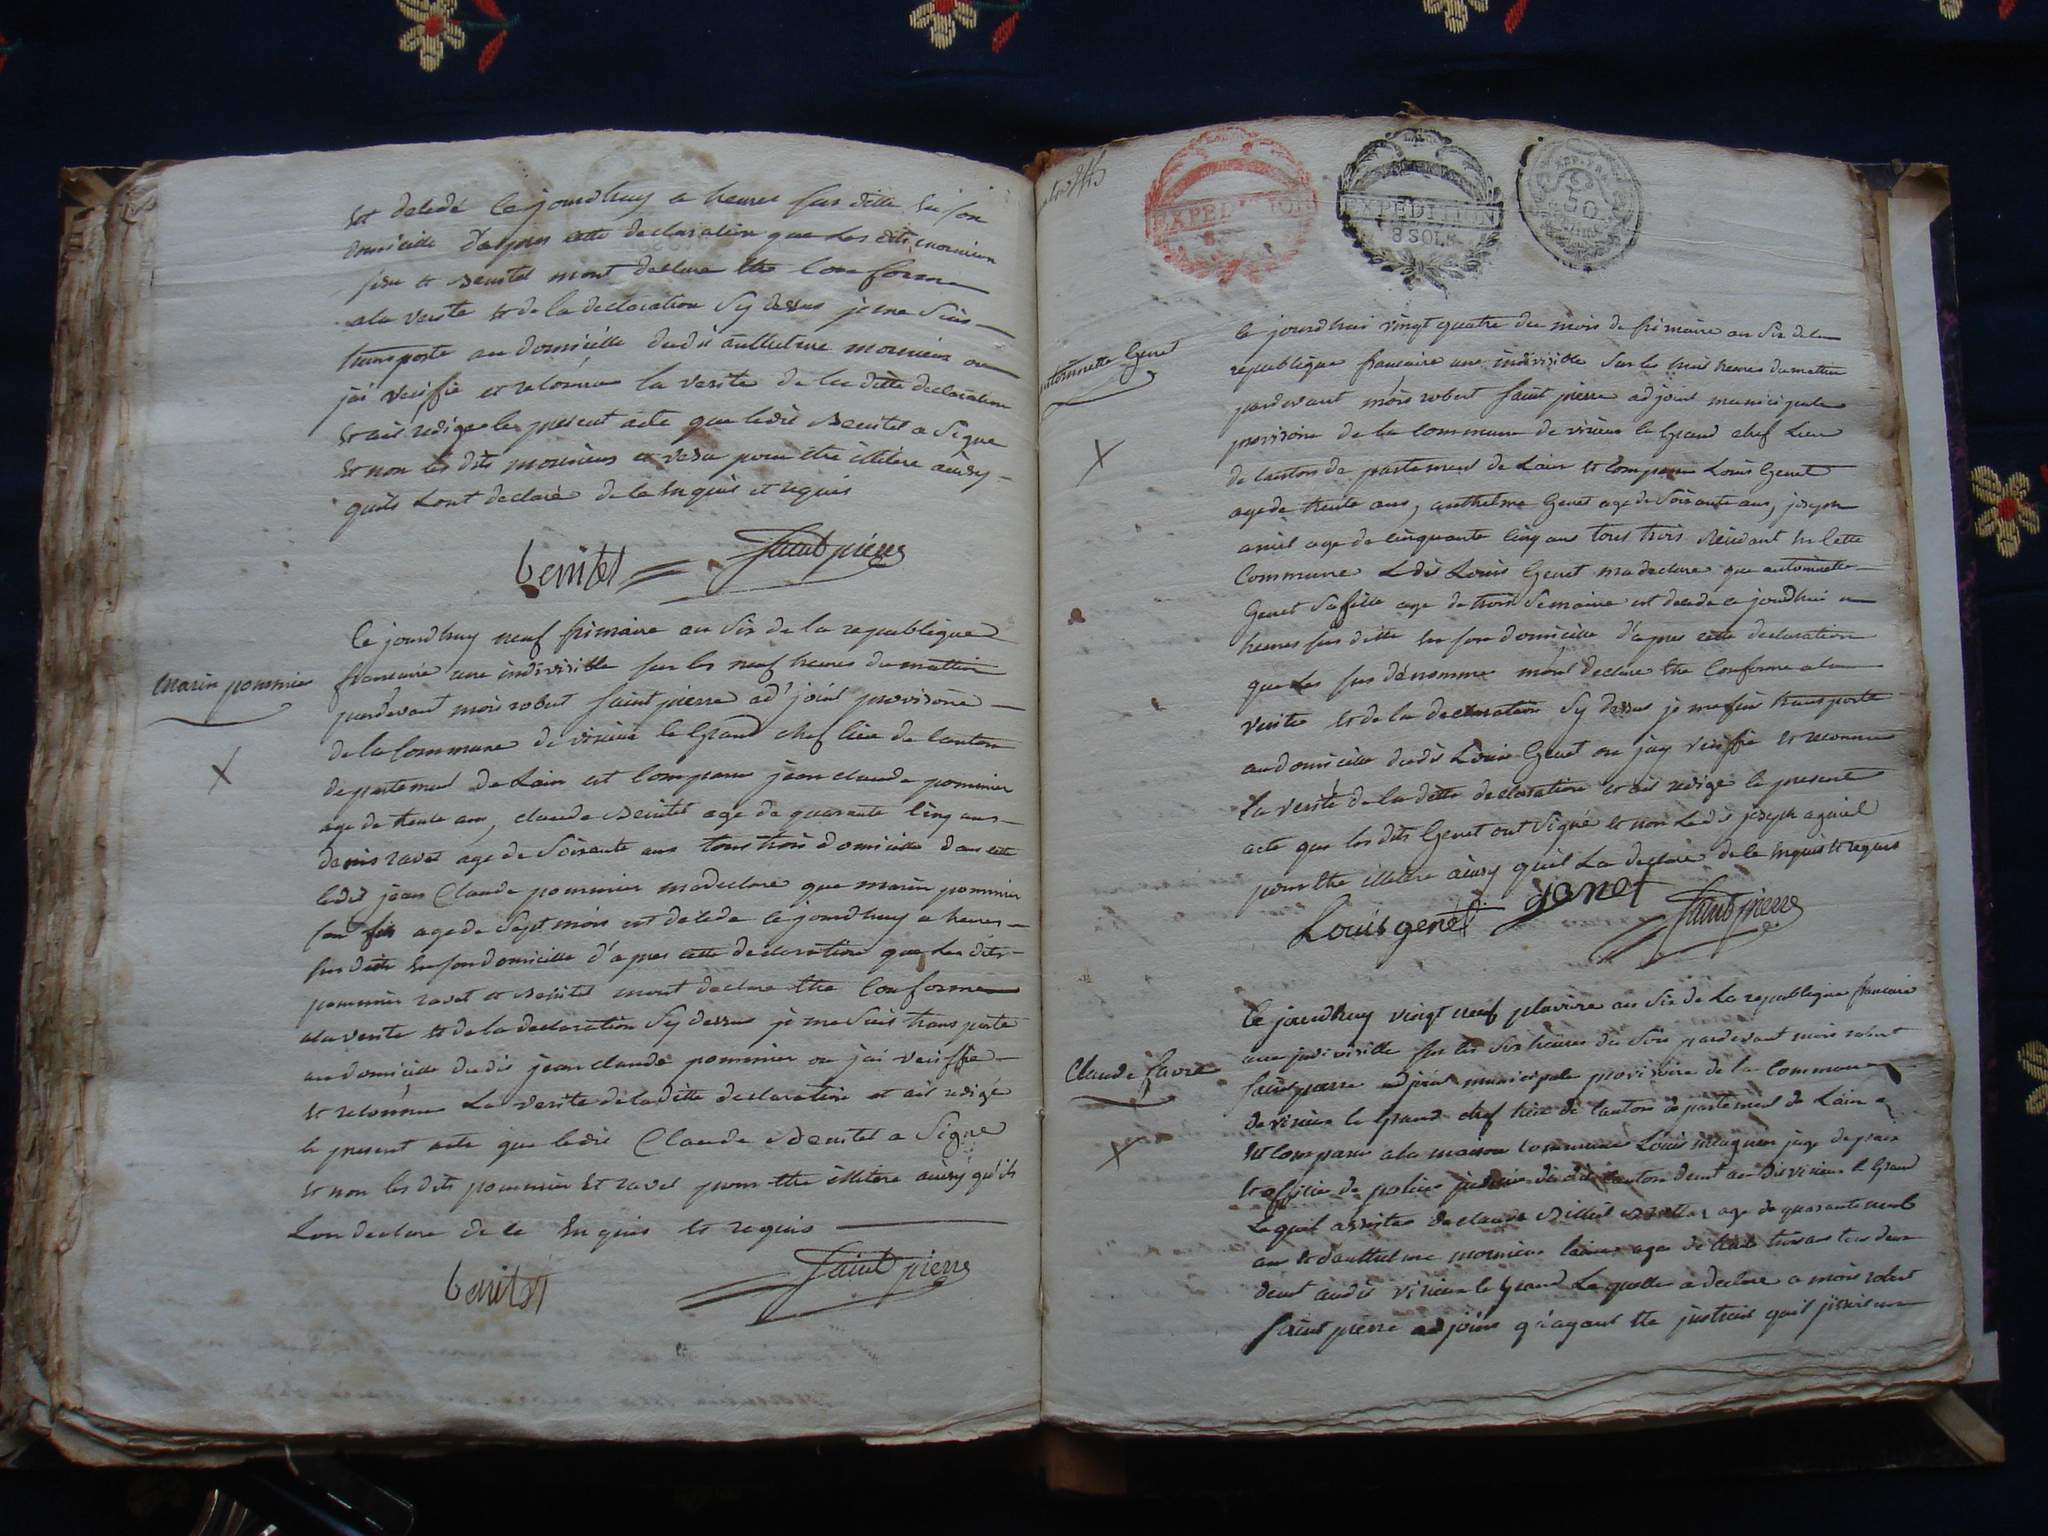 est décédé ce jourdhuy a heures sus ditte en son
domicille d'apres cette declaration que les dits mounier
et Benitet mont declare etre conforme
a la verite et de la declaration sy dessus je me suis
transporte au domicille dudit anthelme mounier ou
jai veriffie et reconnu la verite de la ditte declaration
et ait redige le present acte que ledit Benitet a signe
et non les dits mouniers et ravat pour etre illitere ainsy
quils lont declaré de ce enquis et requis
benitet Saint pierre
Ce jourdhuy neuf frimaire an six de la republique
francaise une indivisible sur les neuf heures du mattin
pardevant mois robert saint pierre ad'joint provisoire
marin pommier
de la commune de virieu le grand chef lieu de canton
departement de Lain est comparu jean claude pommier
age de trente ans, claude Benitet age de quarante cinq ans
denis ravat age de soixante ans tous trois domicille dans cette
ledit jean Claude pommier ma declare que marin pommier
son fils age de sept mois est décédé ce jourdhuy a heures
sus ditte en son domicille d'apres cette declaration que les dits
pommier ravat et Benitet mont declare etre conforme
a la verite et de la declaration sy dessus je me suis transporte
au domicille dudit jean claude pommier ou jai veriffie
et reconnu la verite de la ditte declaration et ait redigé
le present acte que ledit Claude Benitet a signe
et non les dits pommier et ravat pour etre illitere ainsy qu'ils
lon declare de ce enquis et requis
benitet Saint pierre
EXPEDITION
EXPEDITION
8 SOLS
REP. FRA
50
Ce jourdhui vingt quatre du mois de frimaire an six de la
antoinette Genet
republique francaise une indivisible sur les huit heures du mattin
pardevant mois robert saint pierre adjoint municipale
provisoire de la commune de virieu le grand chef lieu
de canton departement de Lain est comparu Louis Genet
age de trente ans, anthelme Genet age de soixante ans, joseph
aguiel age de cinquante cinq ans tous trois residant en cette
commune Ledit Louis Genet ma declare que antoinette
Genet sa fille age de trois semaine est décédé ce jourdhui a
heures sus ditte en son domicille d'apres cette declaration
que les sus dénommé mont declare etre conforme a la
verite et de la declaration sy dessus je me suis transporte
au domicille dudit Louis Genet ou jay veriffie et reconnu
la verité de la ditte declaration et ait redige le present
acte que les dits Genet ont signé et non ledit joseph aguiel
pour etre illitere ainsy quil la declare de ce enquis et requis
Louis genet genet Saint pierre
Ce jourdhuy vingt neuf pluviose an six de la republique francaise
une indivisible sur les six heures du soir pardevant mois robert
Claude favre
saint pierre adjoint municipale provisoire de la commune
de virieu le grand chef lieu de canton departement de Lain
est comparu a la maison commune Louis juge de paix
et officier de police judiciaire dudit canton demt au dit virieu le grand
Lequel assister de claude age de quarante neuf
ans et d'anthelme mounier laine age de trente trois ans tous deux
demt audit virieu le grand Lequelle a declare a mois robert
saint pierre adjoint q'ayant ete instruit